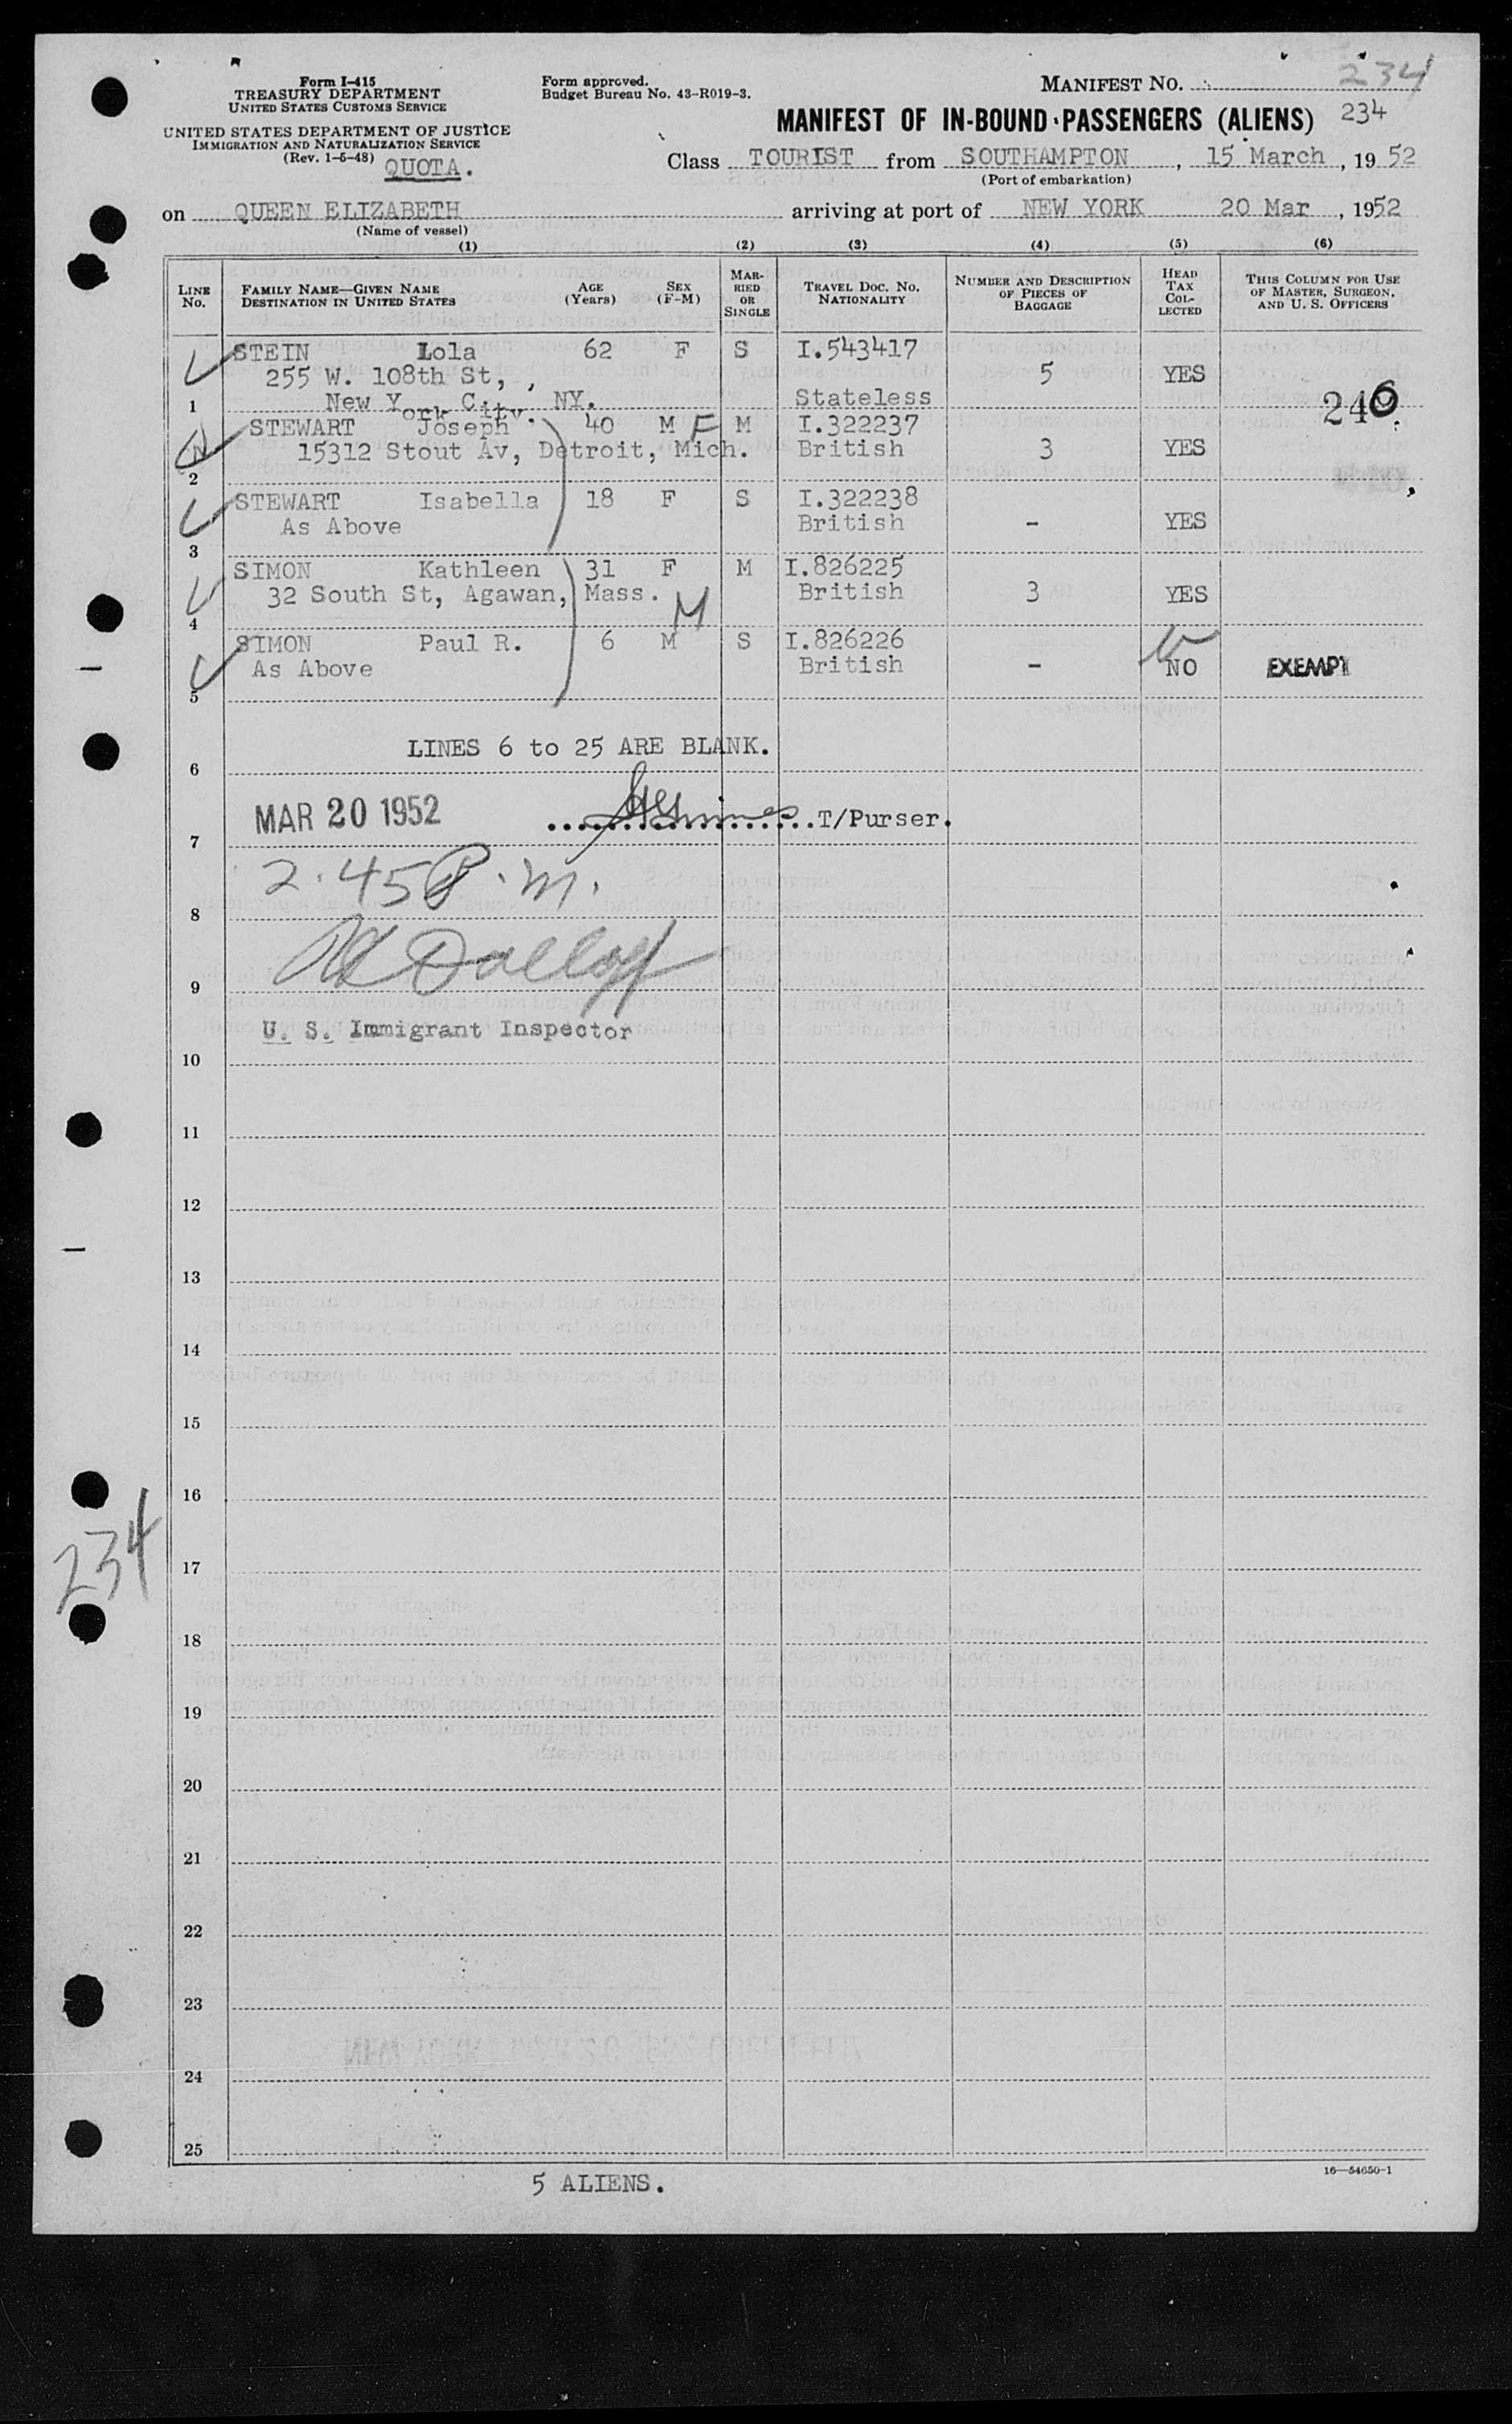 Form I-415
TREASURY DEPARTMENT
UNITED STATES CUSTOMS SERVICE
UNITED STATES DEPARTMENT OF JUSTICE
IMMIGRATION AND NATURALIZATION SERVICE
(Rev. 1-5-48)
QUOTA.
Form approved.
Budget Bureau No. 43-R019-3.
MANIFEST NO. 234
MANIFEST OF IN-BOUND PASSENGERS (ALIENS) 234
Class TOURIST from SOUTHAMPTON, 15 March, 1952
(Port of embarkation)
on QUEEN ELIZABETH arriving at port of NEW YORK 20 Mar, 1952
(Name of vessel)
(1) (2) (3) (4) (5) (6)
LINE No. FAMILY NAME—GIVEN NAME DESTINATION IN UNITED STATES AGE (Years) SEX (F-M) MARRIED OR SINGLE TRAVEL DOC. NO. NATIONALITY NUMBER AND DESCRIPTION OF PIECES OF BAGGAGE HEAD TAX COLLECTED THIS COLUMN FOR USE OF MASTER, SURGEON, AND U. S. OFFICERS
STEIN Lola 62 F S I.543417
255 W. 108th St, , 5 YES
1 New York City. NY. Stateless 246
STEWART Joseph 40 M F M I.322237
15312 Stout Av, Detroit, Mich. British 3 YES
2
STEWART Isabella 18 F S I.322238
As Above British - YES
3
SIMON Kathleen 31 F M I.826225
32 South St, Agawan, Mass. British 3 YES
4 M
SIMON Paul R. 6 M S I.826226
As Above British - NO EXEMPT
5
LINES 6 to 25 ARE BLANK.
6
MAR 20 1952 T/Purser.
7
2.45 P.m.
8
9
U. S. Immigrant Inspector
10
11
12
13
14
15
16
234
17
18
19
20
21
22
23
24
25
5 ALIENS.
16—54650-1